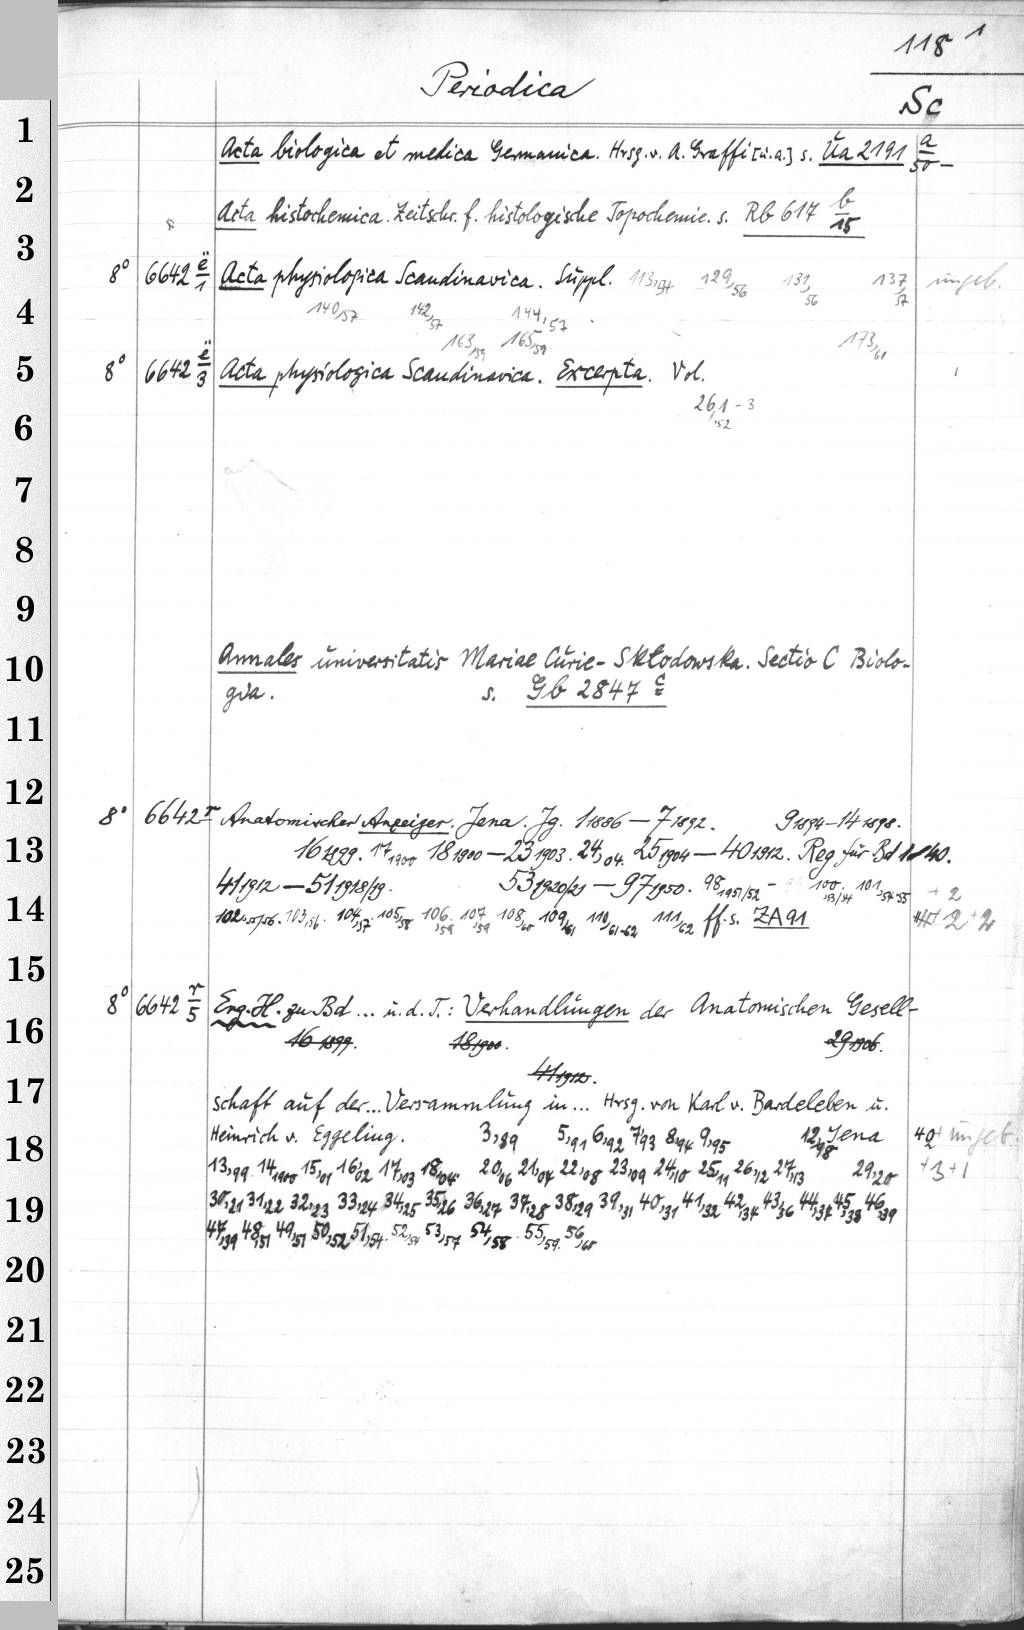 118 1
Periodica
Sc
1
Acta biologica et medica Germanica. Hrsg. v. A. Graffi [u. a.] s. Ua 2191 a/50
2
Acta histochemica. Zeitschr. f. histologische Topochemie. s. Rb 617 b/15
3
8° 6642 ë/1 Acta physiologica Scandinavica. Suppl. 113,54 129,56 131,56 137,57 ungeb.
4
140,57 142,57 144,57
163,59 165,59 173,61
5
8° 6642 ë/3 Acta physiologica Scandinavica. Excerpta. Vol.
26,1-3
,52
6
7
8
9
10
Annales universitatis Mariae Curie-Skłodowska. Sectio C Biolo-
gia. s. Gb 2847 c
11
12
8° 6642 r Anatomischer Anzeiger. Jena. Jg. 1 1886 — 7 1892. 9 1894 — 14 1898.
13
16 1899. 17 1900 18 1900 — 23 1903. 24,04. 25 1904 — 40 1912. Reg für Bd 1-40.
41 1912 — 51 1918/19. 53 1920/21 — 97 1950. 98 1951/52 - 100,53/54 101,54-55 + 2
14
102,55/56. 103,56. 104,57. 105,58 106,59 107,59 108,60 109,61 110,61-62 111,62 ff. s. ZA 91 + 2 + 2
15
8° 6642 r/5 Erg. H. zu Bd ... u. d. T.: Verhandlungen der Anatomischen Gesell-
16
16 1899. 18 1900. 29 1906.
41 1912.
17
schaft auf der ... Versammlung in ... Hrsg. von Karl v. Bardeleben u.
Heinrich v. Eggeling. 3,89 5,91 6,92 7,93 8,94 9,95 12,98 Jena 40 + ungeb.
18
13,99 14,1900 15,01 16,02 17,03 18,04 20,06 21,07 22,08 23,09 24,10 25,11 26,12 27,13 29,20 + 3 + 1
19
30,21 31,22 32,23 33,24 34,25 35,26 36,27 37,28 38,29 39,31 40,31 41,32 42,34 43,36 44,37 45,38 46,39
47,39 48,51 49,51 50,52 51,54. 52,54 53,57 54,58 55,59. 56,60
20
21
22
23
24
25